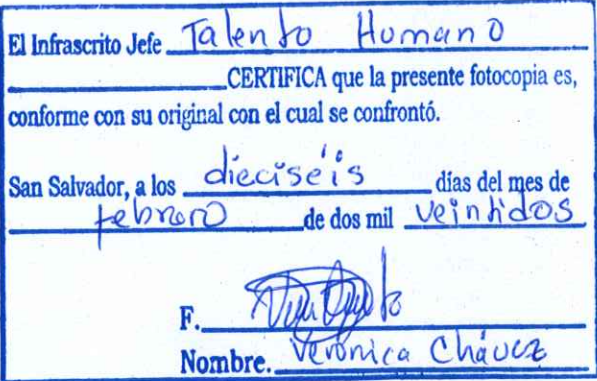 El Infrascrito Jefe Talento Humano
CERTIFICA que la presente fotocopia es,
conforme con su original con el cual se confrontó.
San Salvador, a los dieciséis días del mes de
febrero de dos mil veintidos
F.
Nombre. Verónica Chávez